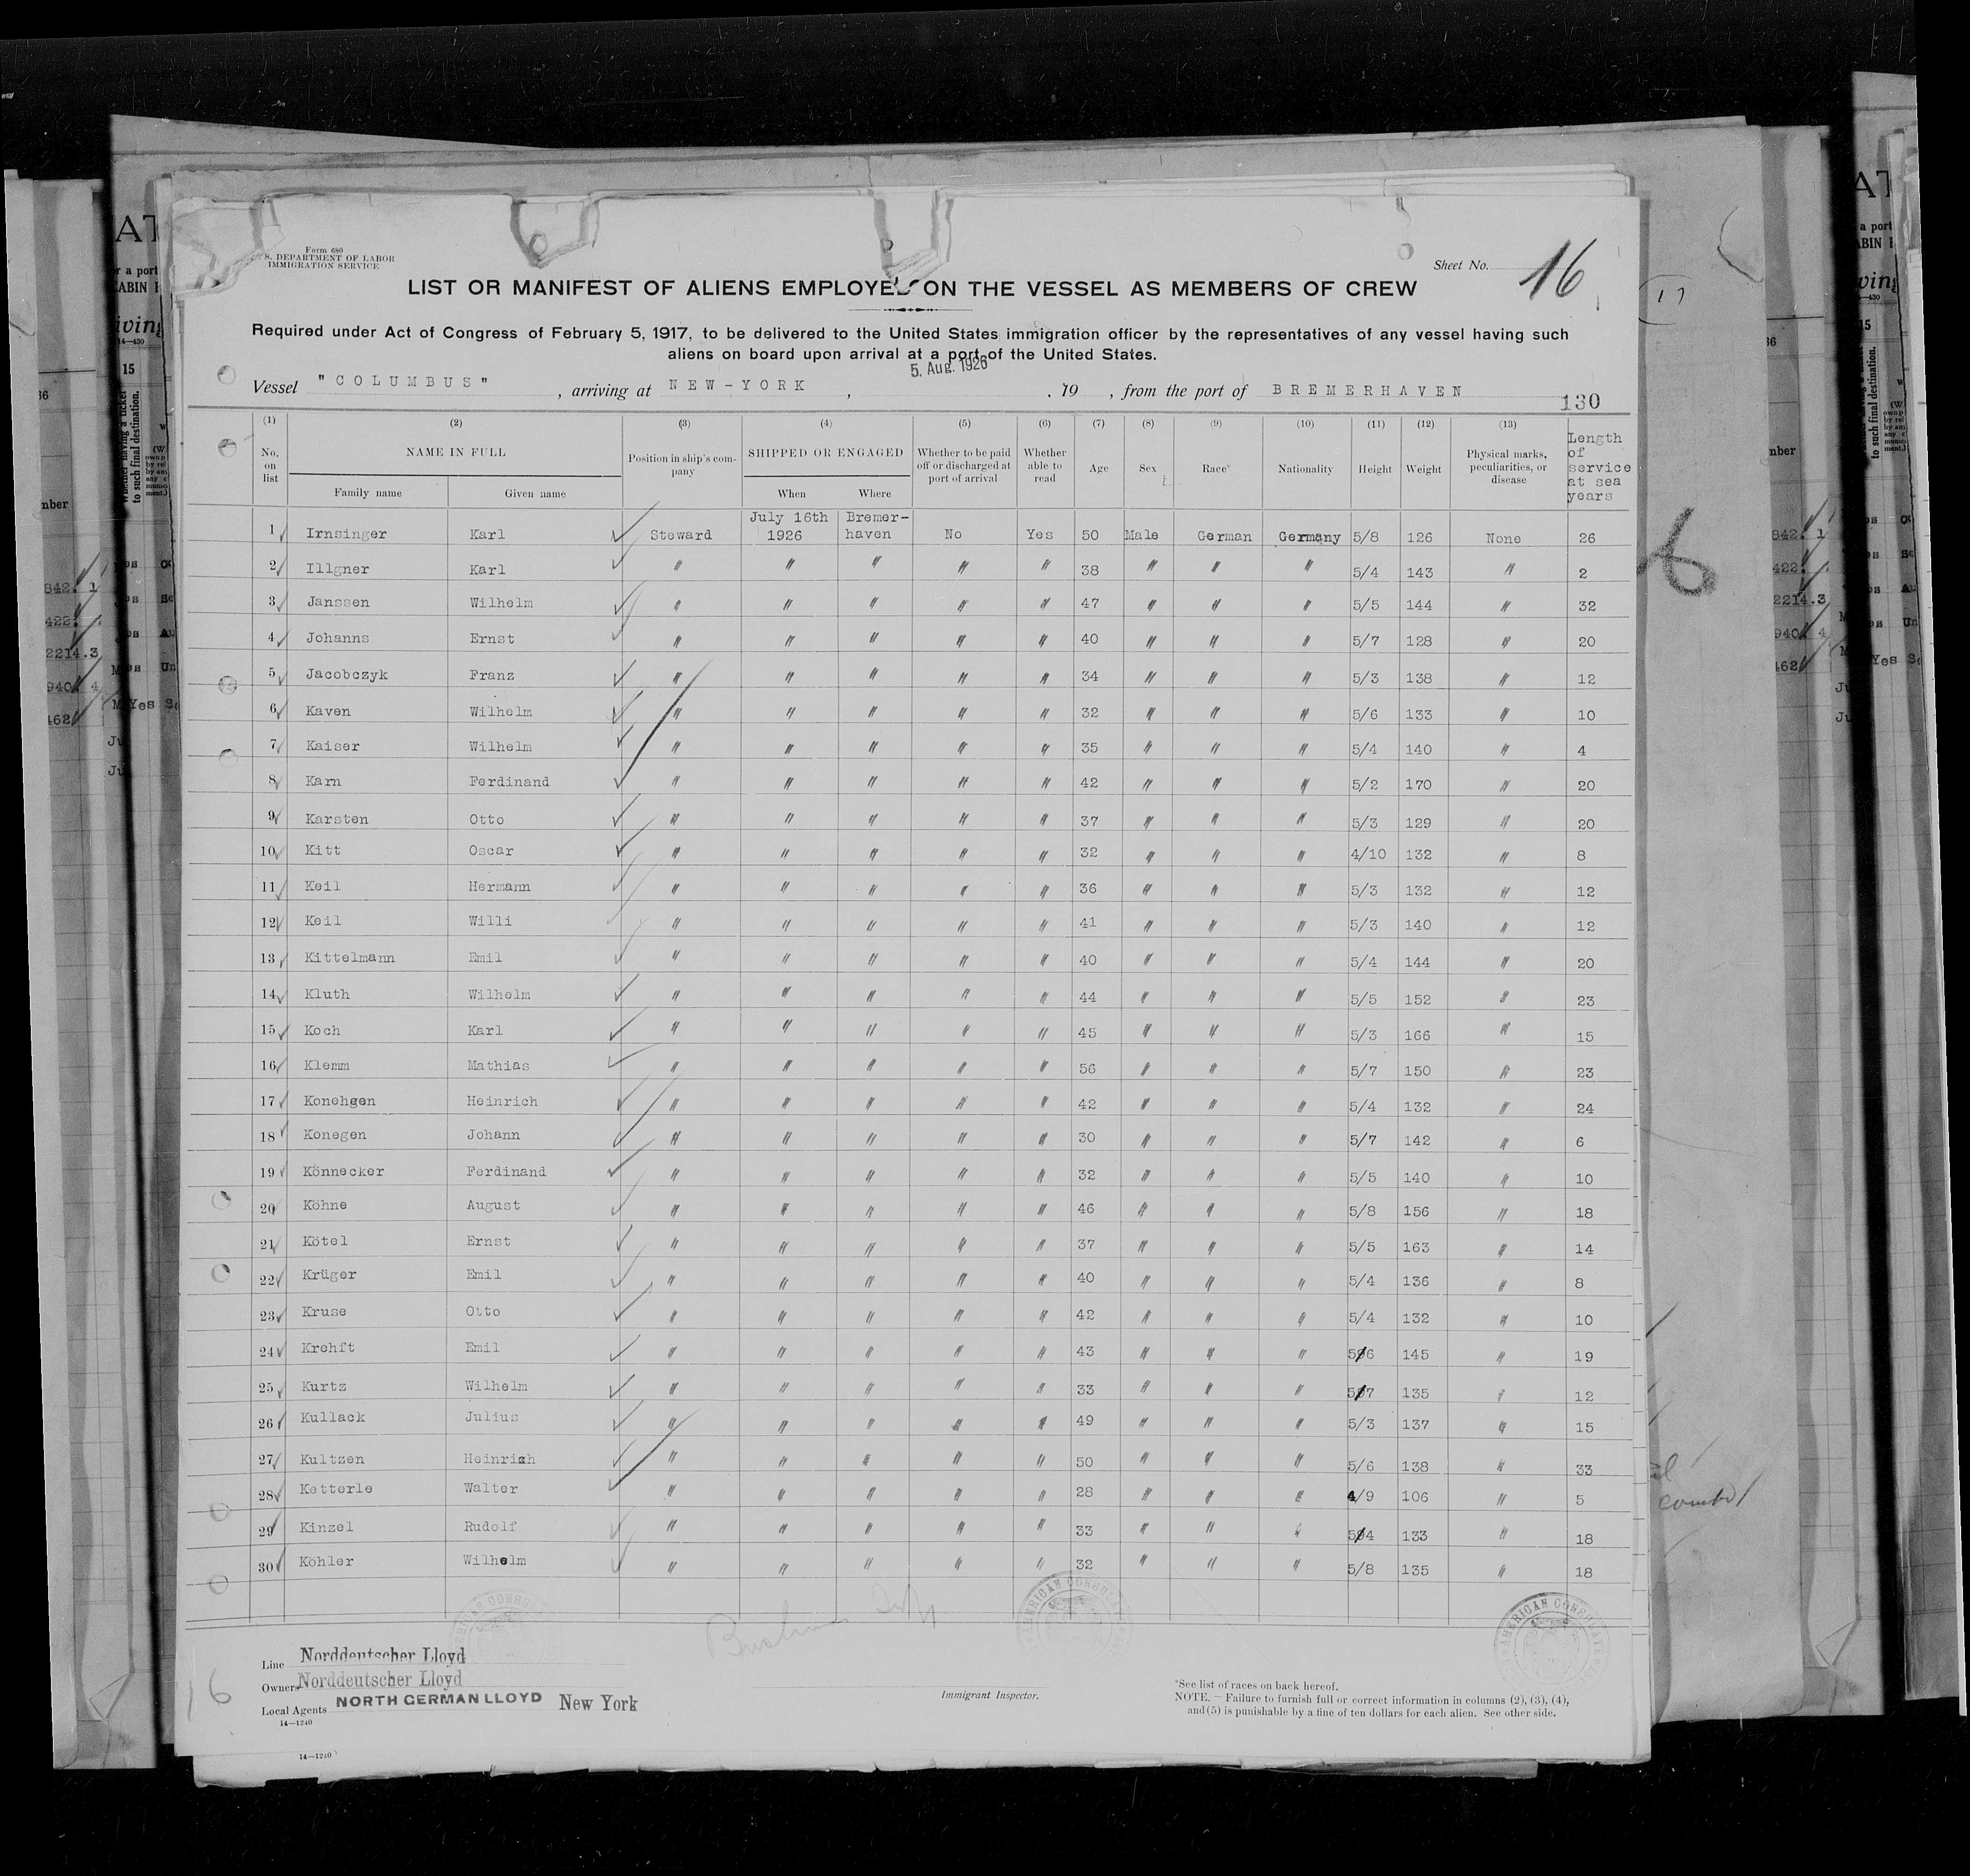 Form 680
S. DEPARTMENT OF LABOR
IMMIGRATION SERVICE
Sheet No. 16
LIST OR MANIFEST OF ALIENS EMPLOYED ON THE VESSEL AS MEMBERS OF CREW
Required under Act of Congress of February 5, 1917, to be delivered to the United States immigration officer by the representatives of any vessel having such
aliens on board upon arrival at a port of the United States.
5. Aug. 1926
Vessel "COLUMBUS" , arriving at NEW-YORK , , 19 , from the port of BREMERHAVEN
130
(1) (2) (3) (4) (5) (6) (7) (8) (9) (10) (11) (12) (13)
No. on list NAME IN FULL Family name Given name Position in ship's company SHIPPED OR ENGAGED When Where Whether to be paid off or discharged at port of arrival Whether able to read Age Sex Race* Nationality Height Weight Physical marks, peculiarities, or disease Length of service at sea years
1 Irnsinger Karl Steward July 16th 1926 Bremer-haven No Yes 50 Male German Germany 5/8 126 None 26
2 Illgner Karl " " " " " 38 " " " 5/4 143 " 2
3 Janssen Wilhelm " " " " " 47 " " " 5/5 144 " 32
4 Johanns Ernst " " " " " 40 " " " 5/7 128 " 20
5 Jacobczyk Franz " " " " " 34 " " " 5/3 138 " 12
6 Kaven Wilhelm " " " " " 32 " " " 5/6 133 " 10
7 Kaiser Wilhelm " " " " " 35 " " " 5/4 140 " 4
8 Karn Ferdinand " " " " " 42 " " " 5/2 170 " 20
9 Karsten Otto " " " " " 37 " " " 5/3 129 " 20
10 Kitt Oscar " " " " " 32 " " " 4/10 132 " 8
11 Keil Hermann " " " " " 36 " " " 5/3 132 " 12
12 Keil Willi " " " " " 41 " " " 5/3 140 " 12
13 Kittelmann Emil " " " " " 40 " " " 5/4 144 " 20
14 Kluth Wilhelm " " " " " 44 " " " 5/5 152 " 23
15 Koch Karl " " " " " 45 " " " 5/3 166 " 15
16 Klemm Mathias " " " " " 56 " " " 5/7 150 " 23
17 Konehgen Heinrich " " " " " 42 " " " 5/4 132 " 24
18 Konegen Johann " " " " " 30 " " " 5/7 142 " 6
19 Könnecker Ferdinand " " " " " 32 " " " 5/5 140 " 10
20 Köhne August " " " " " 46 " " " 5/8 156 " 18
21 Kötel Ernst " " " " " 37 " " " 5/5 163 " 14
22 Krüger Emil " " " " " 40 " " " 5/4 136 " 8
23 Kruse Otto " " " " " 42 " " " 5/4 132 " 10
24 Krehft Emil " " " " " 43 " " " 5/6 145 " 19
25 Kurtz Wilhelm " " " " " 33 " " " 5/7 135 " 12
26 Kullack Julius " " " " " 49 " " " 5/3 137 " 15
27 Kultzen Heinrich " " " " " 50 " " " 5/6 138 " 33
28 Ketterle Walter " " " " " 28 " " " 4/9 106 " 5
29 Kinzel Rudolf " " " " " 33 " " " 5/4 133 " 18
30 Köhler Wilhelm " " " " " 32 " " " 5/8 135 " 18
AMERICAN CONSULATE
Line Norddeutscher Lloyd
Owners Norddeutscher Lloyd
Local Agents NORTH GERMAN LLOYD New York
14—1240
Immigrant Inspector.
*See list of races on back hereof.
NOTE.—Failure to furnish full or correct information in columns (2), (3), (4),
and (5) is punishable by a fine of ten dollars for each alien. See other side.
16
14—1240